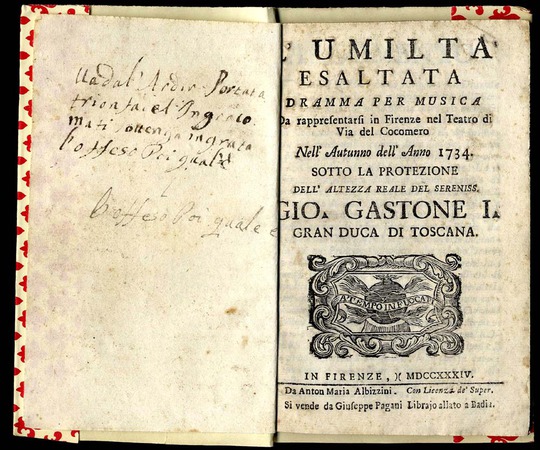 Portata
trionfa el
mati
l'offeso Poi quale
l'offeso Poi quale è
L'UMILTA
ESALTATA
DRAMMA PER MUSICA
Da rappresentarsi in Firenze nel Teatro di
Via del Cocomero
Nell' Autunno dell' Anno 1734.
SOTTO LA PROTEZIONE
DELL' ALTEZZA REALE DEL SERENISS.
GIO. GASTONE I.
GRAN DUCA DI TOSCANA.
IN FIRENZE, )( MDCCXXXIV.
Da Anton Maria Albizzini. Con Licenza de' Super.
Si vende da Giuseppe Pagani Librajo allato a Badia.